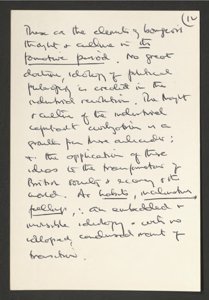 (12
These are the elements of bourgeois
thought & culture in its
formative period. No great
doctrine, ideology or political
philosophy is created in the
industrial revolution. The thought
& culture of the industrial
capitalist civilization is a
from these antecedents:
& the application of these
ideas to the transformation of
British society & economy & the
world. As habits,
feelings, : an embedded &
invisible ideology & with no
ideology, condensed event of
transition.